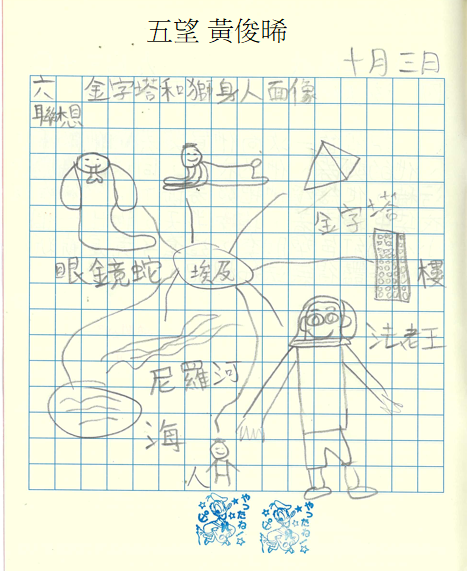 五望 黃俊晞
十月三日
六 金字塔和獅身人面像
聯想
金字塔
眼鏡蛇
埃及
樓
法老王
尼羅河
海
人
やったね!
やったね!